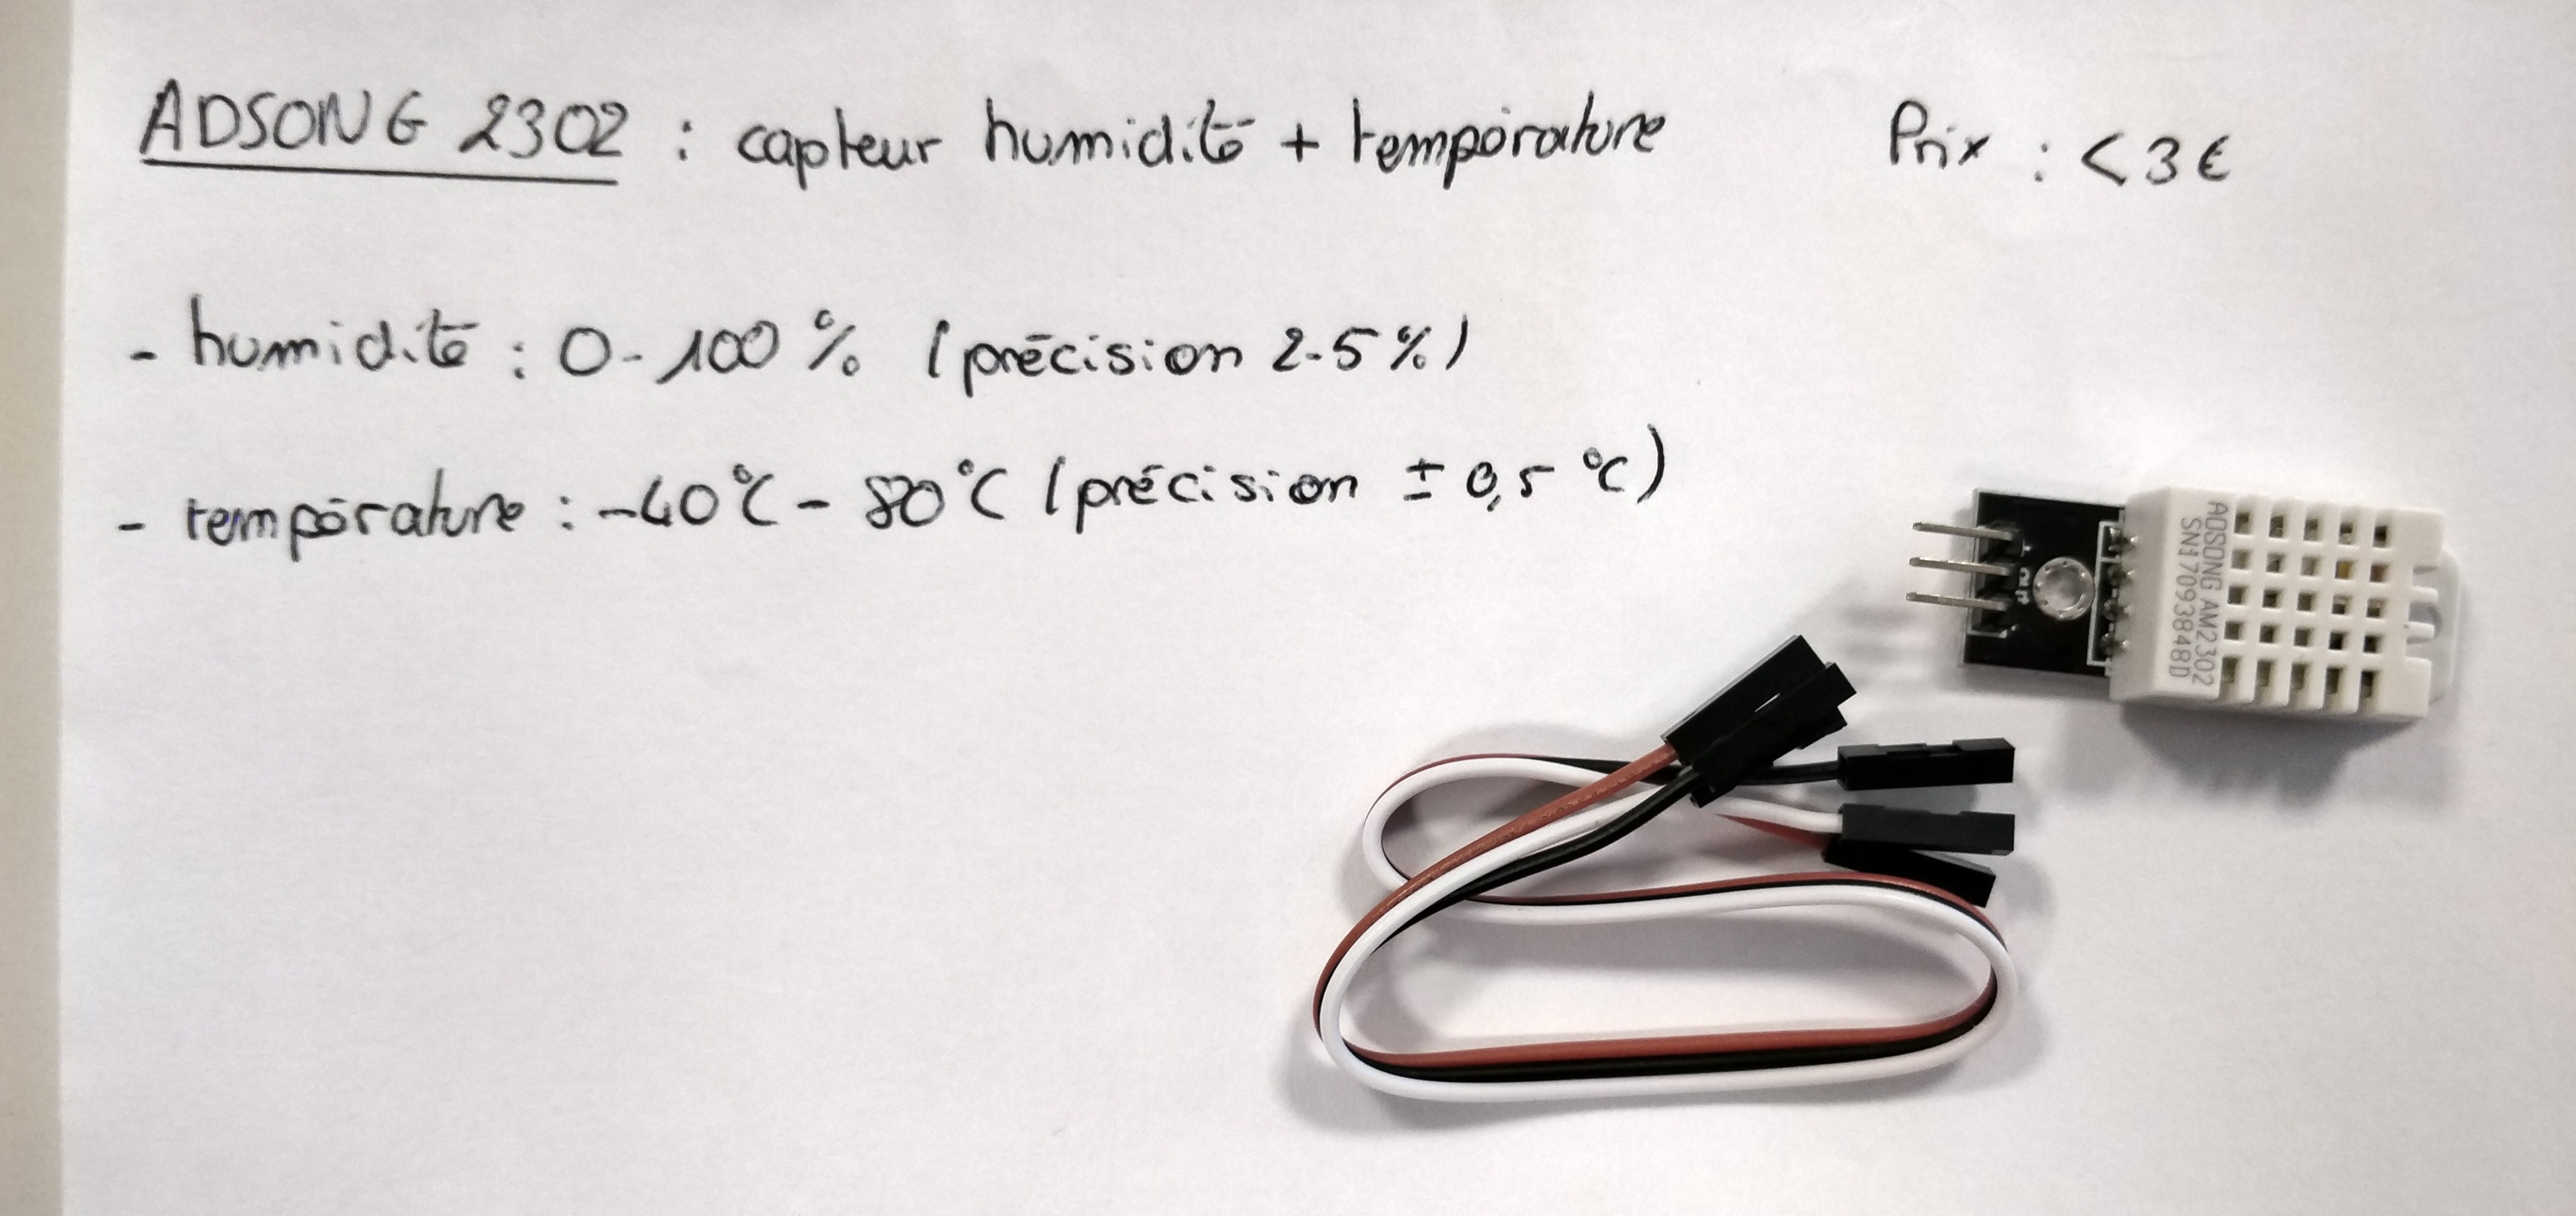 ADSONG 2302 : capteur humidité + température Prix : <3€
- humidité : 0-100 % (précision 2-5%)
- température : -40°C - 80°C (précision ± 0,5 °C)
ADSONG AM2302
SN1709384B48D
out